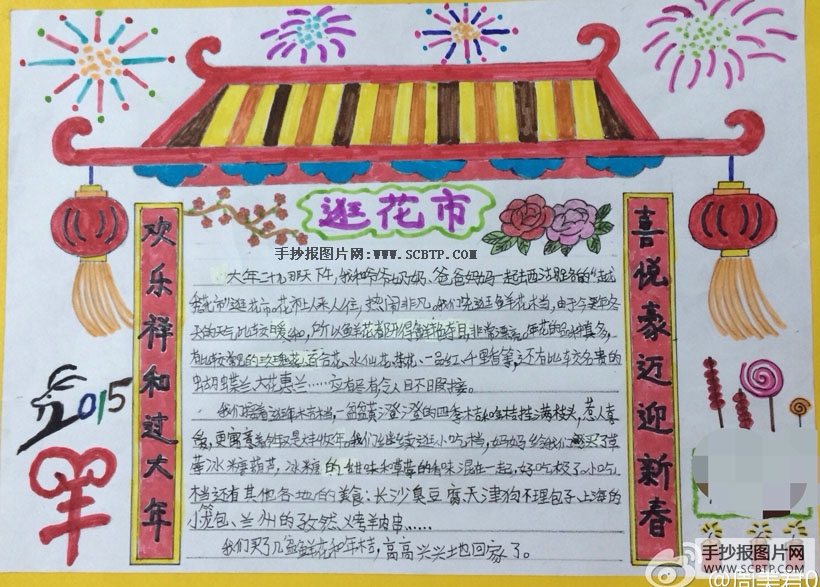 逛花市
手抄报图片网:www.SCBTP.COM
欢乐祥和过大年
喜悦豪迈迎新春
大年二十九那天下午,我和爷爷奶奶、爸爸妈妈一起去西
逛花市。花市上人来人往,热闹非凡。我们先逛鲜花木档,由于今年冬
天的天气比较暖和,所以鲜花都开得鲜艳夺目,非常漂亮。鲜花的品种真多,
有比较常见的玫瑰花、百合花、水仙花、一品红、千里香等,还有比较名贵的
蝴蝶兰、大花惠兰……应有尽有,令人目不暇接。
我们接着逛年桔档,一盆盆黄澄澄的四季桔和金桔挂满枝头,惹人喜
爱,更寓意着年年大丰收年。我们继续逛小吃档,妈妈给我们买了草
莓冰糖葫芦,冰糖的甜味和草莓的香味混在一起,好吃极了。小吃
档还有其他各地的美食:长沙臭豆腐、天津狗不理包子、上海的
小笼包、兰州的孜然烤羊肉串……
我们买了几盆鲜花和年桔,高高兴兴地回家了。
2015
羊
手抄报图片网
WWW.SCBTP.COM